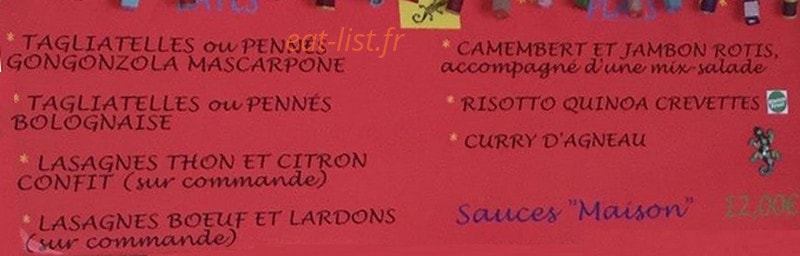 PATES
* TAGLIATELLES ou PENNES
GONGONZOLA MASCARPONE
* TAGLIATELLES ou PENNÉS
BOLOGNAISE
* LASAGNES THON ET CITRON
CONFIT (sur commande)
* LASAGNES BOEUF ET LARDONS
(sur commande)
PLATS
* CAMEMBERT ET JAMBON ROTIS,
accompagné d'une mix-salade
* RISOTTO QUINOA CREVETTES
* CURRY D'AGNEAU
Sauces "Maison" 12,00€
eat-list.fr